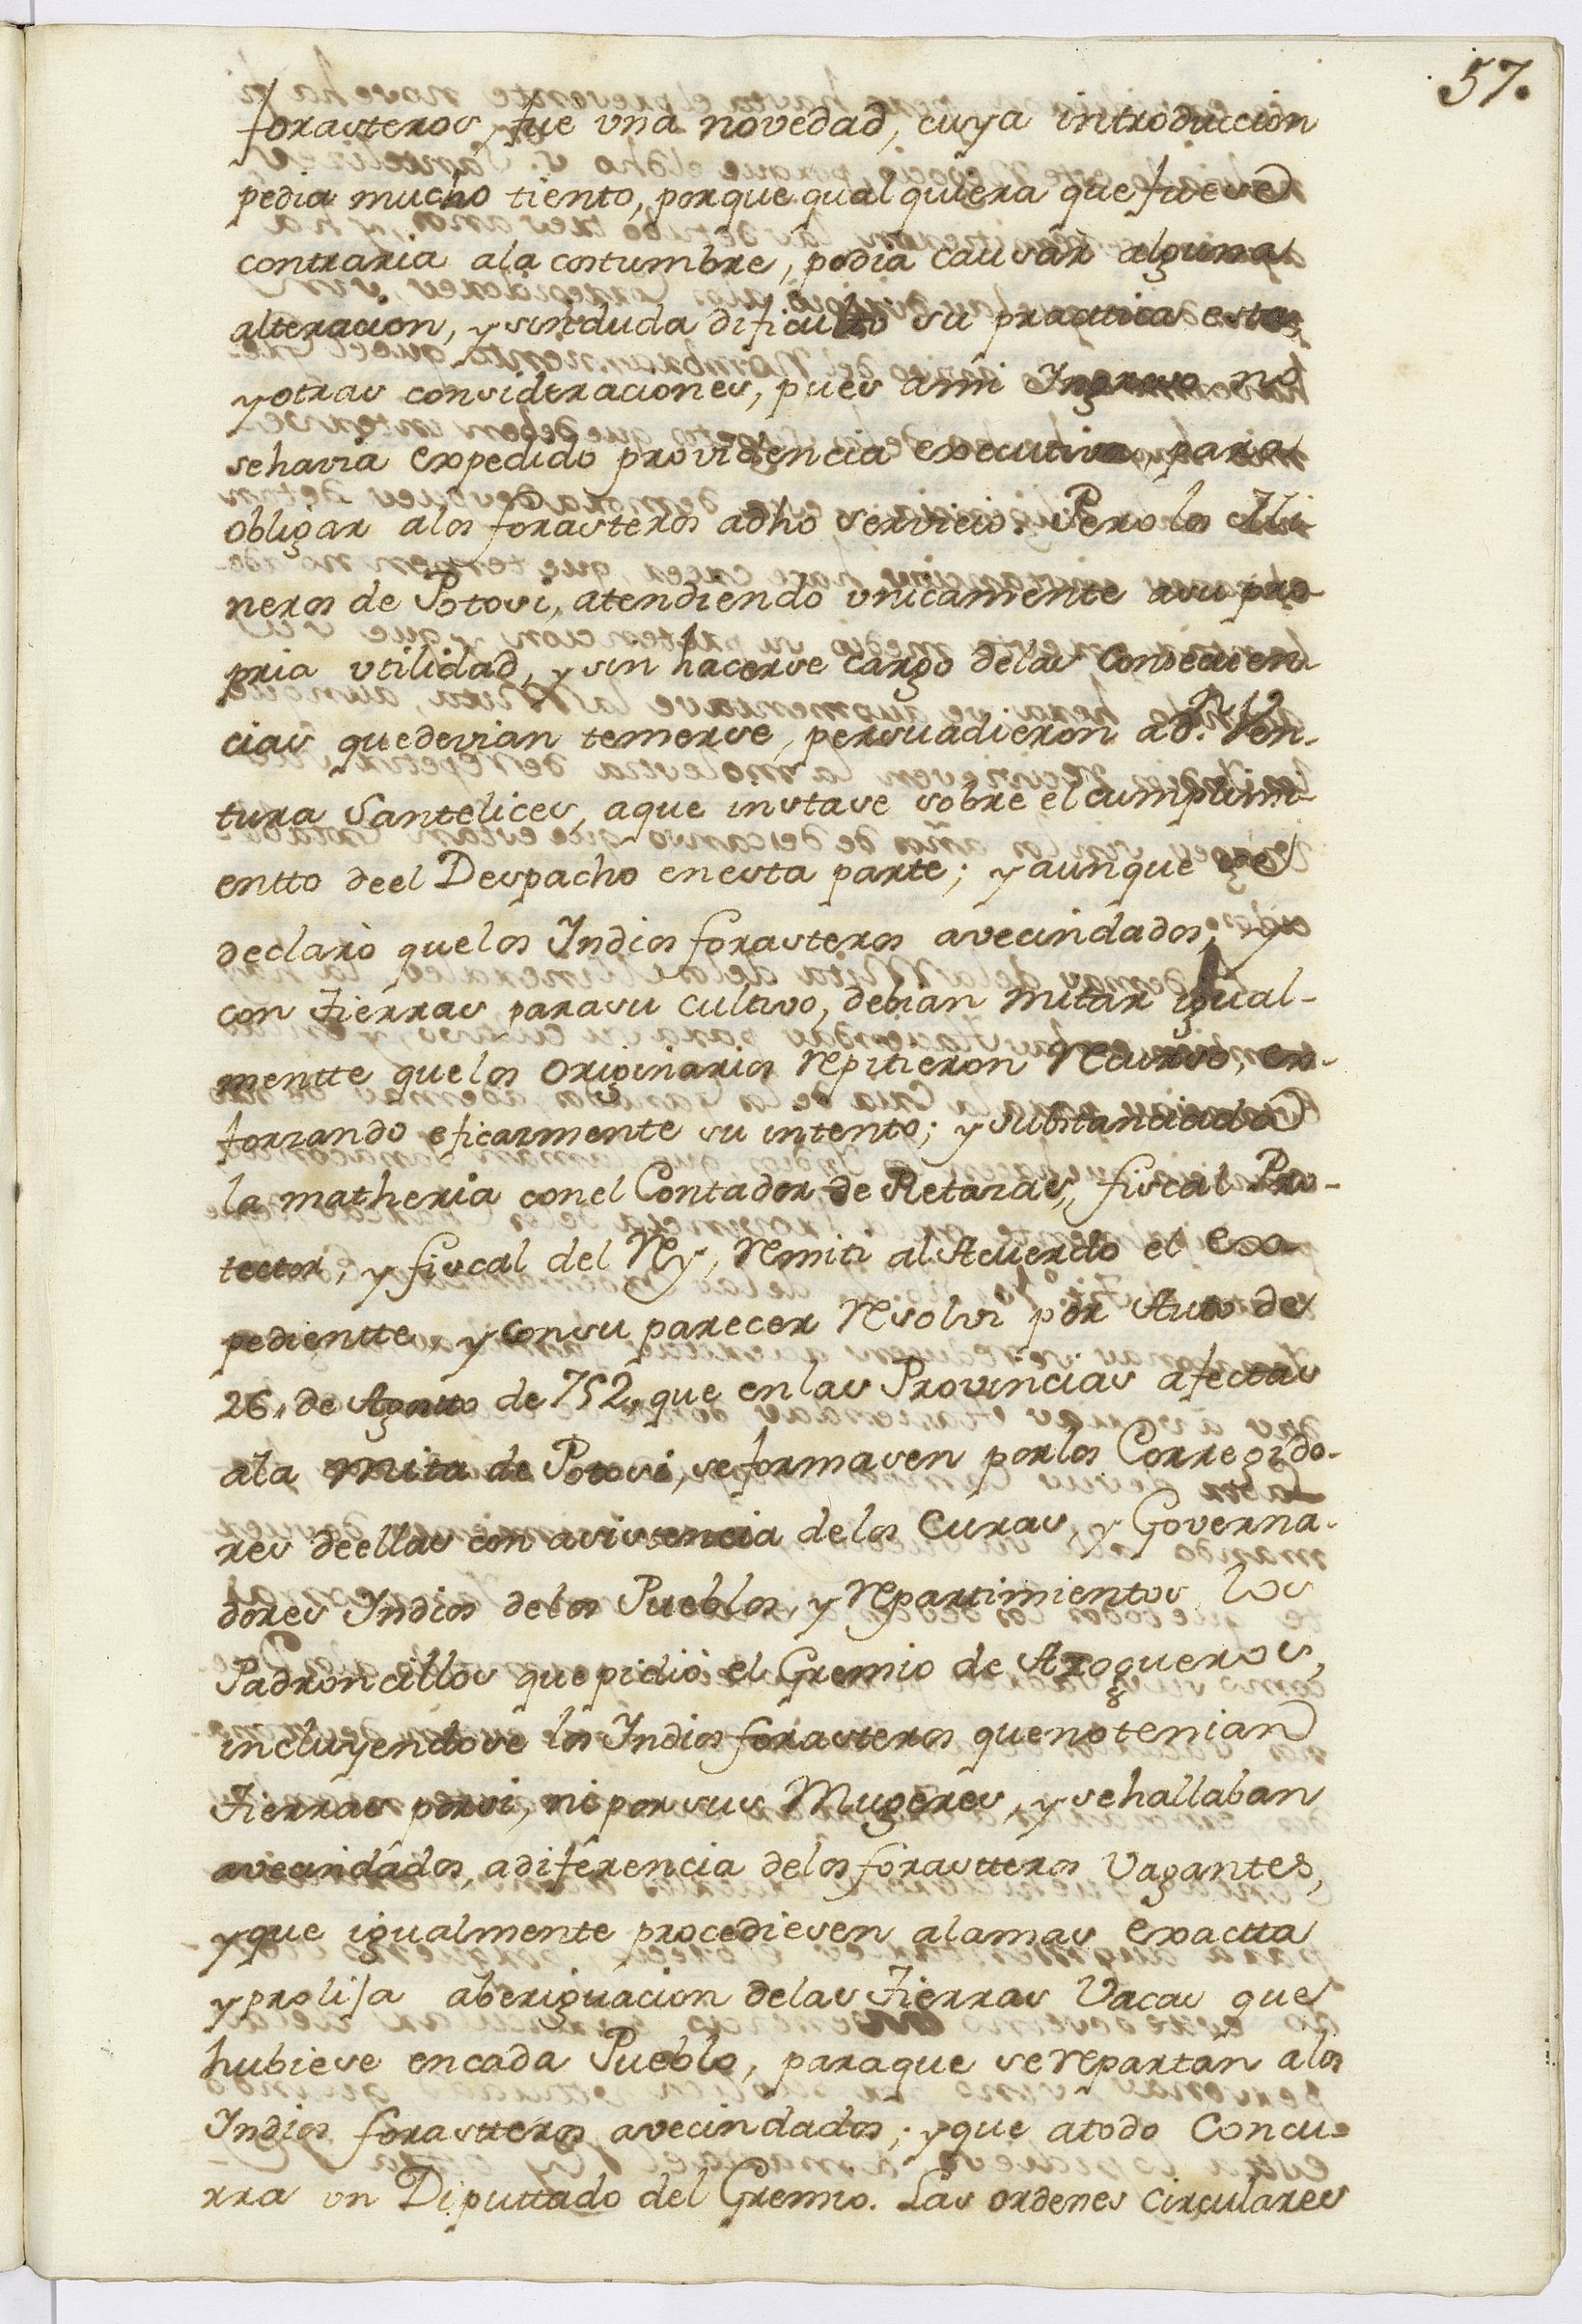 57.
forasteros, fue vna novedad, cuya introduccion
pedia mucho tiento, porque qualquiera que fuese
contraria ala costumbre, podia causar alguna
alteracion, y sin duda dificultò su practica esta,
y otras consideraciones, pues ami Ingreso no
se havia expedido providencia executiva, para
obligar alos forasteros adho servicio. Pero los Mi-
neros de Potosi, atendiendo vnicamente asu pro-
pria vtilidad, y sin hacerse cargo delas consequen-
cias que devian temerse, persuadieron aDn. Ven-
tura Santelices, aque instase sobre el cumplimi-
entto deel Despacho enesta parte; y aunque se
declarò quelos Indios forasteros avecindados, y
con Tierras parasu cultivo, debian mitar igual-
mentte quelos originarios repitieron recurso, es-
forzando eficazmente su intento; y substanciada
la matheria conel Contador de Retazas, fiscal Pro-
tector, y fiscal del Rey, remiti al Acuerdo el Ex-
pedientte, y consu parecer resolvi por Auto de
26, de Agosto de 752, que enlas Provincias afectas
ala mita de Potosi, se formasen porlos Corregido-
res deellas con asistencia delos Curas, y Governa-
dores Indios delos Pueblos, y repartimientos los
Padroncillos que pidiò el Gremio de Azogueros,
incluyendose los Indios forasteros que no tenian
Tierras porsi, ni por sus Mugeres, y se hallaban
avecindados, adiferencia delos forastteros Vagantes,
y que igualmente procediesen alamas exactta
y prolija aberiguacion delas Tierras Vacas que
hubiese encada Pueblo, paraque se repartan alos
Indios forastteros avecindados; y que atodo concu-
rra vn Diputtado del Gremio. Las ordenes circulares